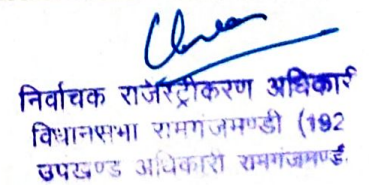 निर्वाचक रजिस्ट्रीकरण अधिकारी
विधानसभा रामगंजमण्डी (192
उपखण्ड अधिकारी रामगंजमण्डी